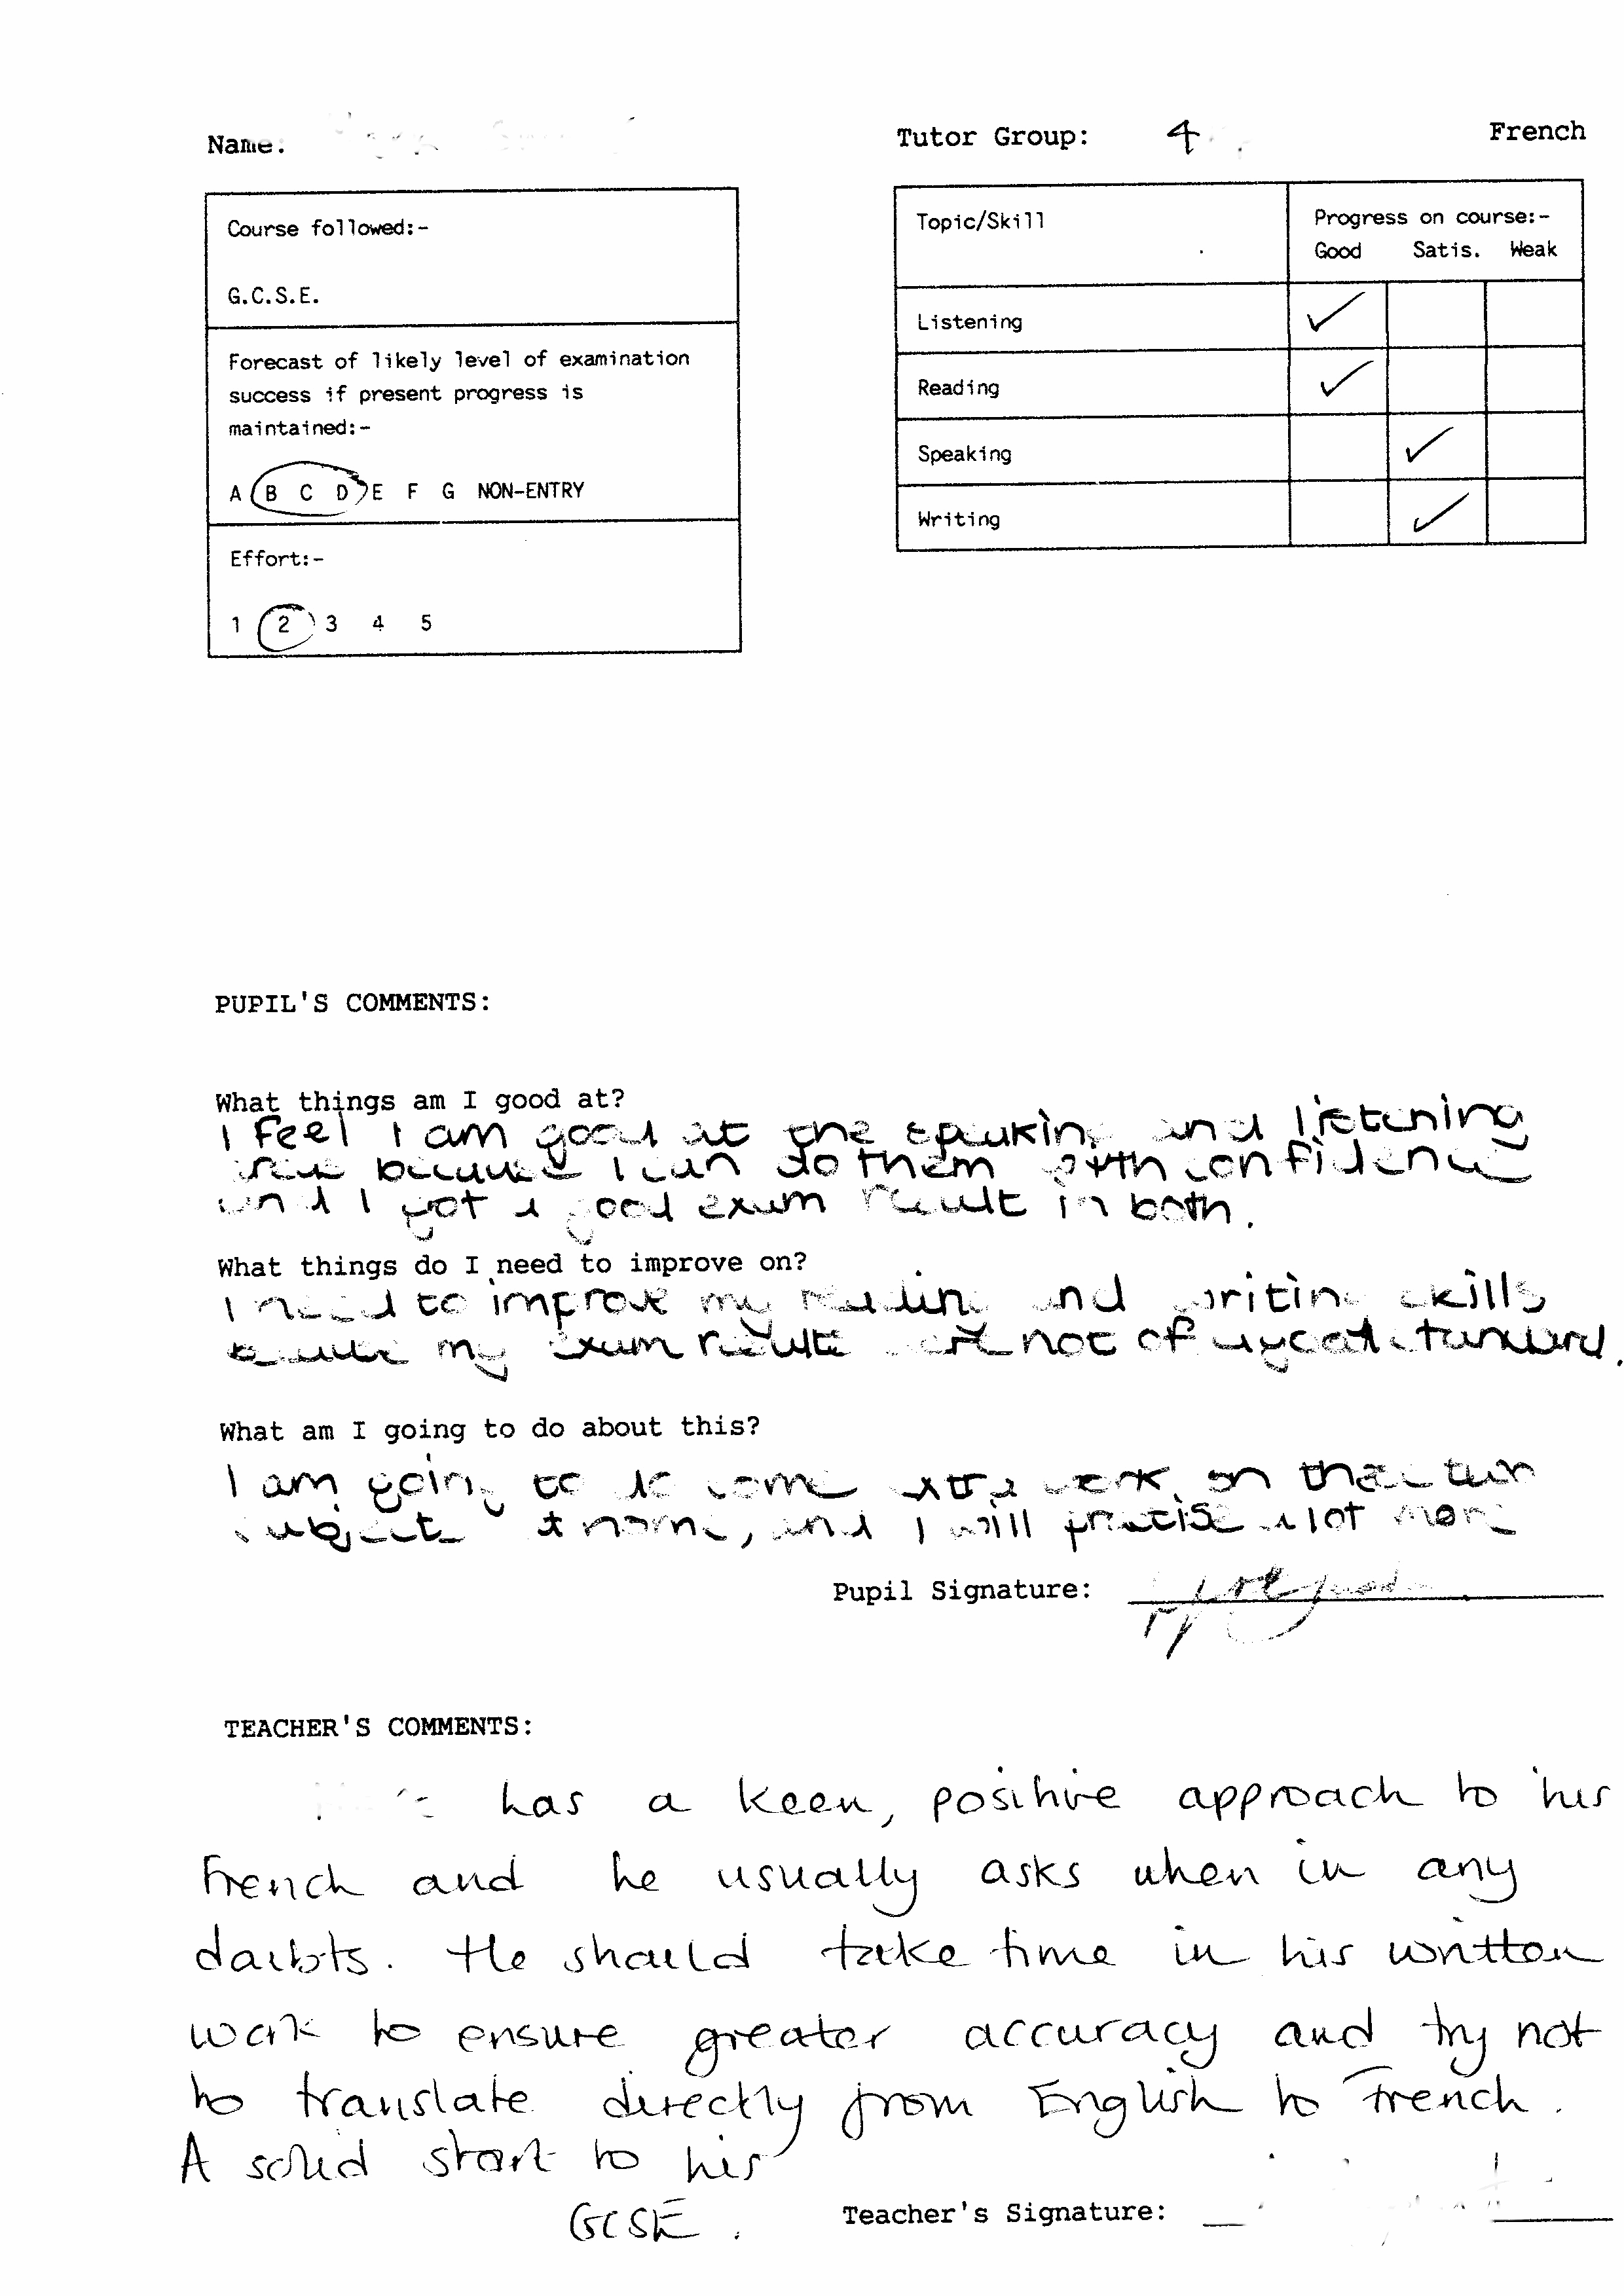 Name:
Tutor Group: 4
French
Course followed:-
G.C.S.E.
Forecast of likely level of examination
success if present progress is
maintained:-
A B C D E F G NON-ENTRY
Effort:-
1 2 3 4 5
Topic/Skill
Progress on course:-
Good Satis. Weak
Listening ✓
Reading ✓
Speaking ✓
Writing ✓
PUPIL'S COMMENTS:
What things am I good at?
I feel I am good at the speaking and listening
because I can do them with confidence
and I got a good exam result in both.
What things do I need to improve on?
I need to improve my reading and writing skills
because my exam results are not of a good standard.
What am I going to do about this?
I am going to do some extra work on these two
subjects at home, and I will practise a lot more
Pupil Signature:
TEACHER'S COMMENTS:
has a keen, positive approach to his
French and he usually asks when in any
doubts. He should take time in his written
work to ensure greater accuracy and try not
to translate directly from English to French.
A solid start to his
GCSE.
Teacher's Signature: